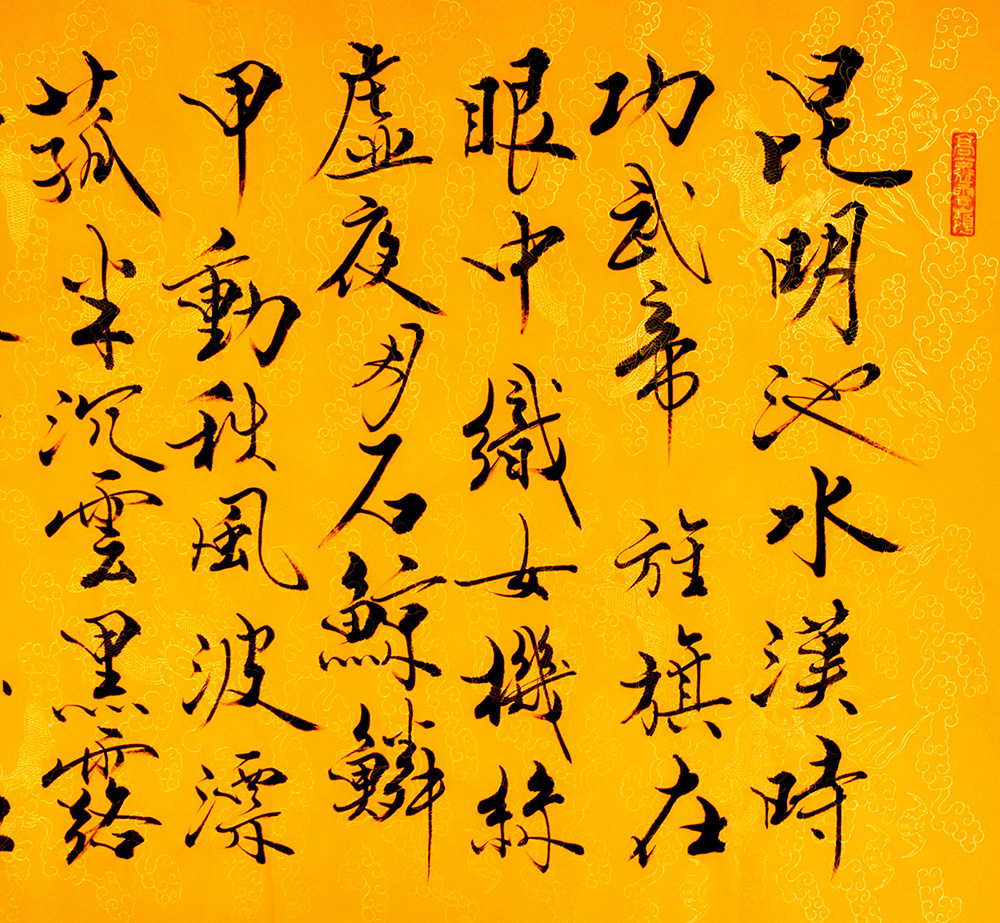 昆明池水漢時
功武帝旌旗在
眼中織女機絲
虛夜月石鯨鱗
甲動秋風波漂
菰米沉雲黑露